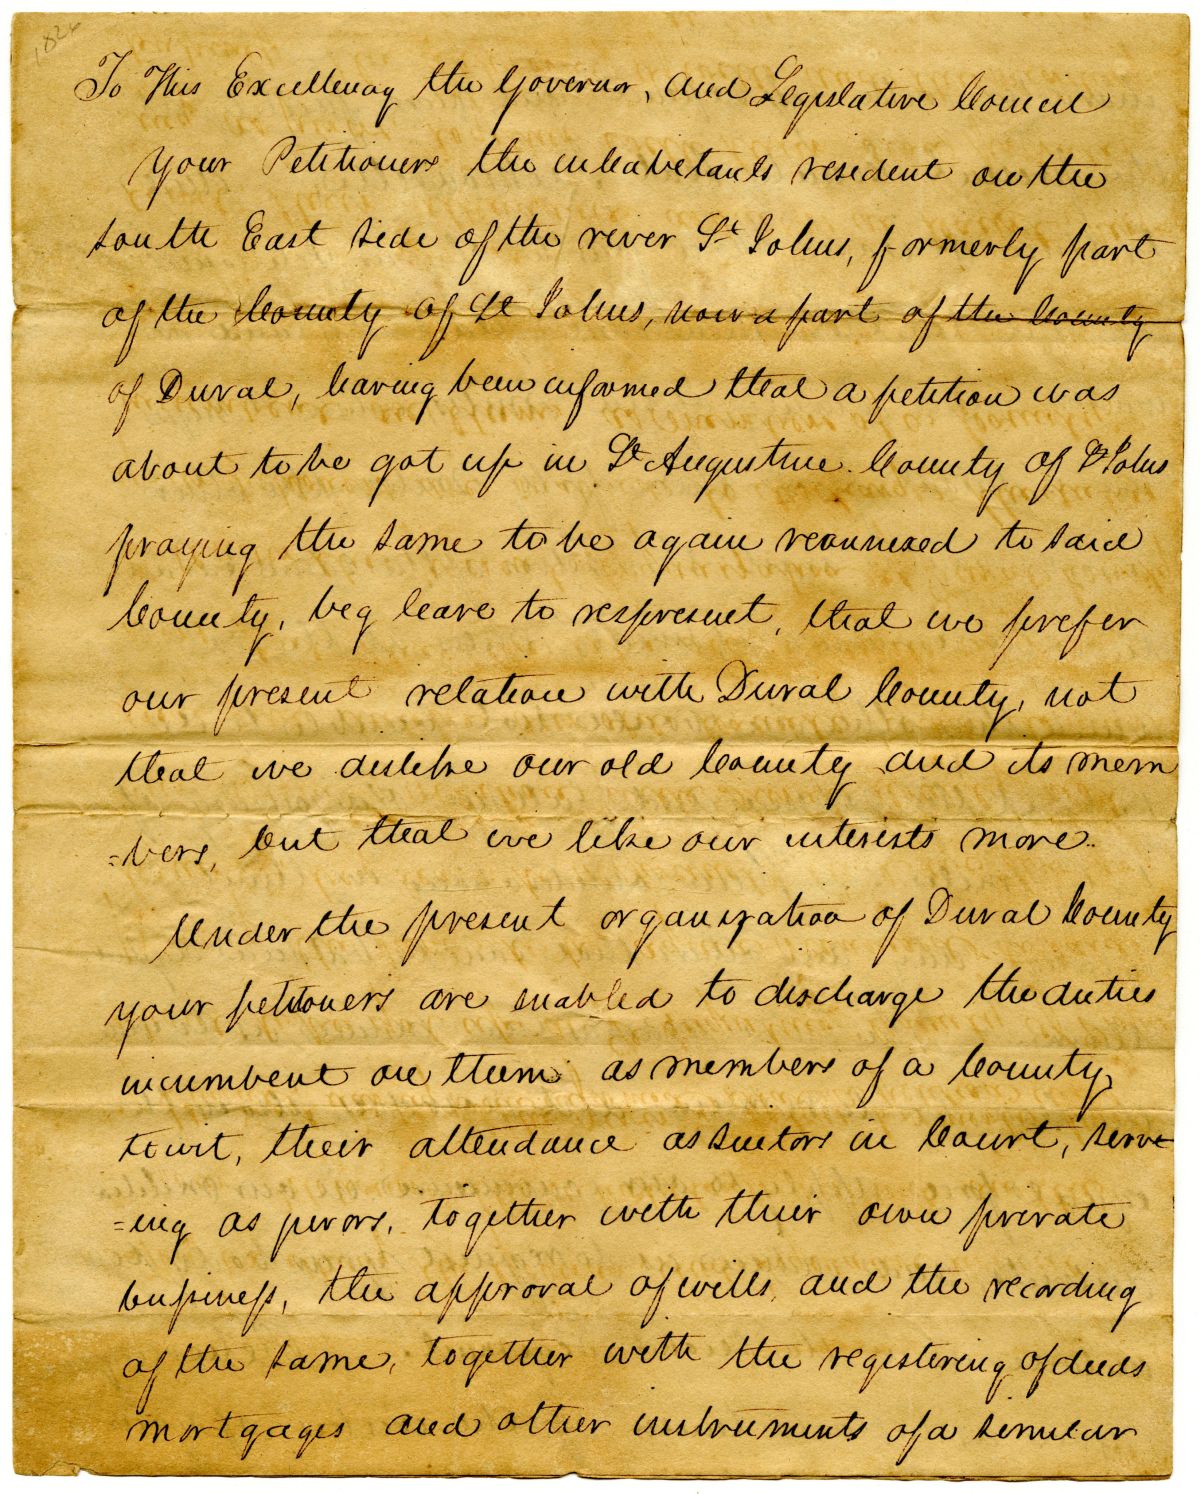 1826
To His Excellency the Governor, and Legislative Council
your Petitioners the inhabetants resident on the
south East side of the river St Johns, formerly part
of the County of St Johns, now a part of the County
of Duval, having been informed that a petition was
about to be got up in St Augustine County of St Johns
praying the same to be again reannexed to said
County, beg leave to respresent, that we prefer
our present relation with Duval County, not
that we dislike our old County and its mem
=bers, but that we like our interests more.
Under the present organization of Duval County
your petitioners are enabled to discharge the duties
incumbent on them as members of a County,
towit, their attendance as suitors in Court, serve
=ing as jurors, together with their own private
business, the approval of wills, and the recording
of the same, together with the registering of deeds
mortgages and other instruments of a similar